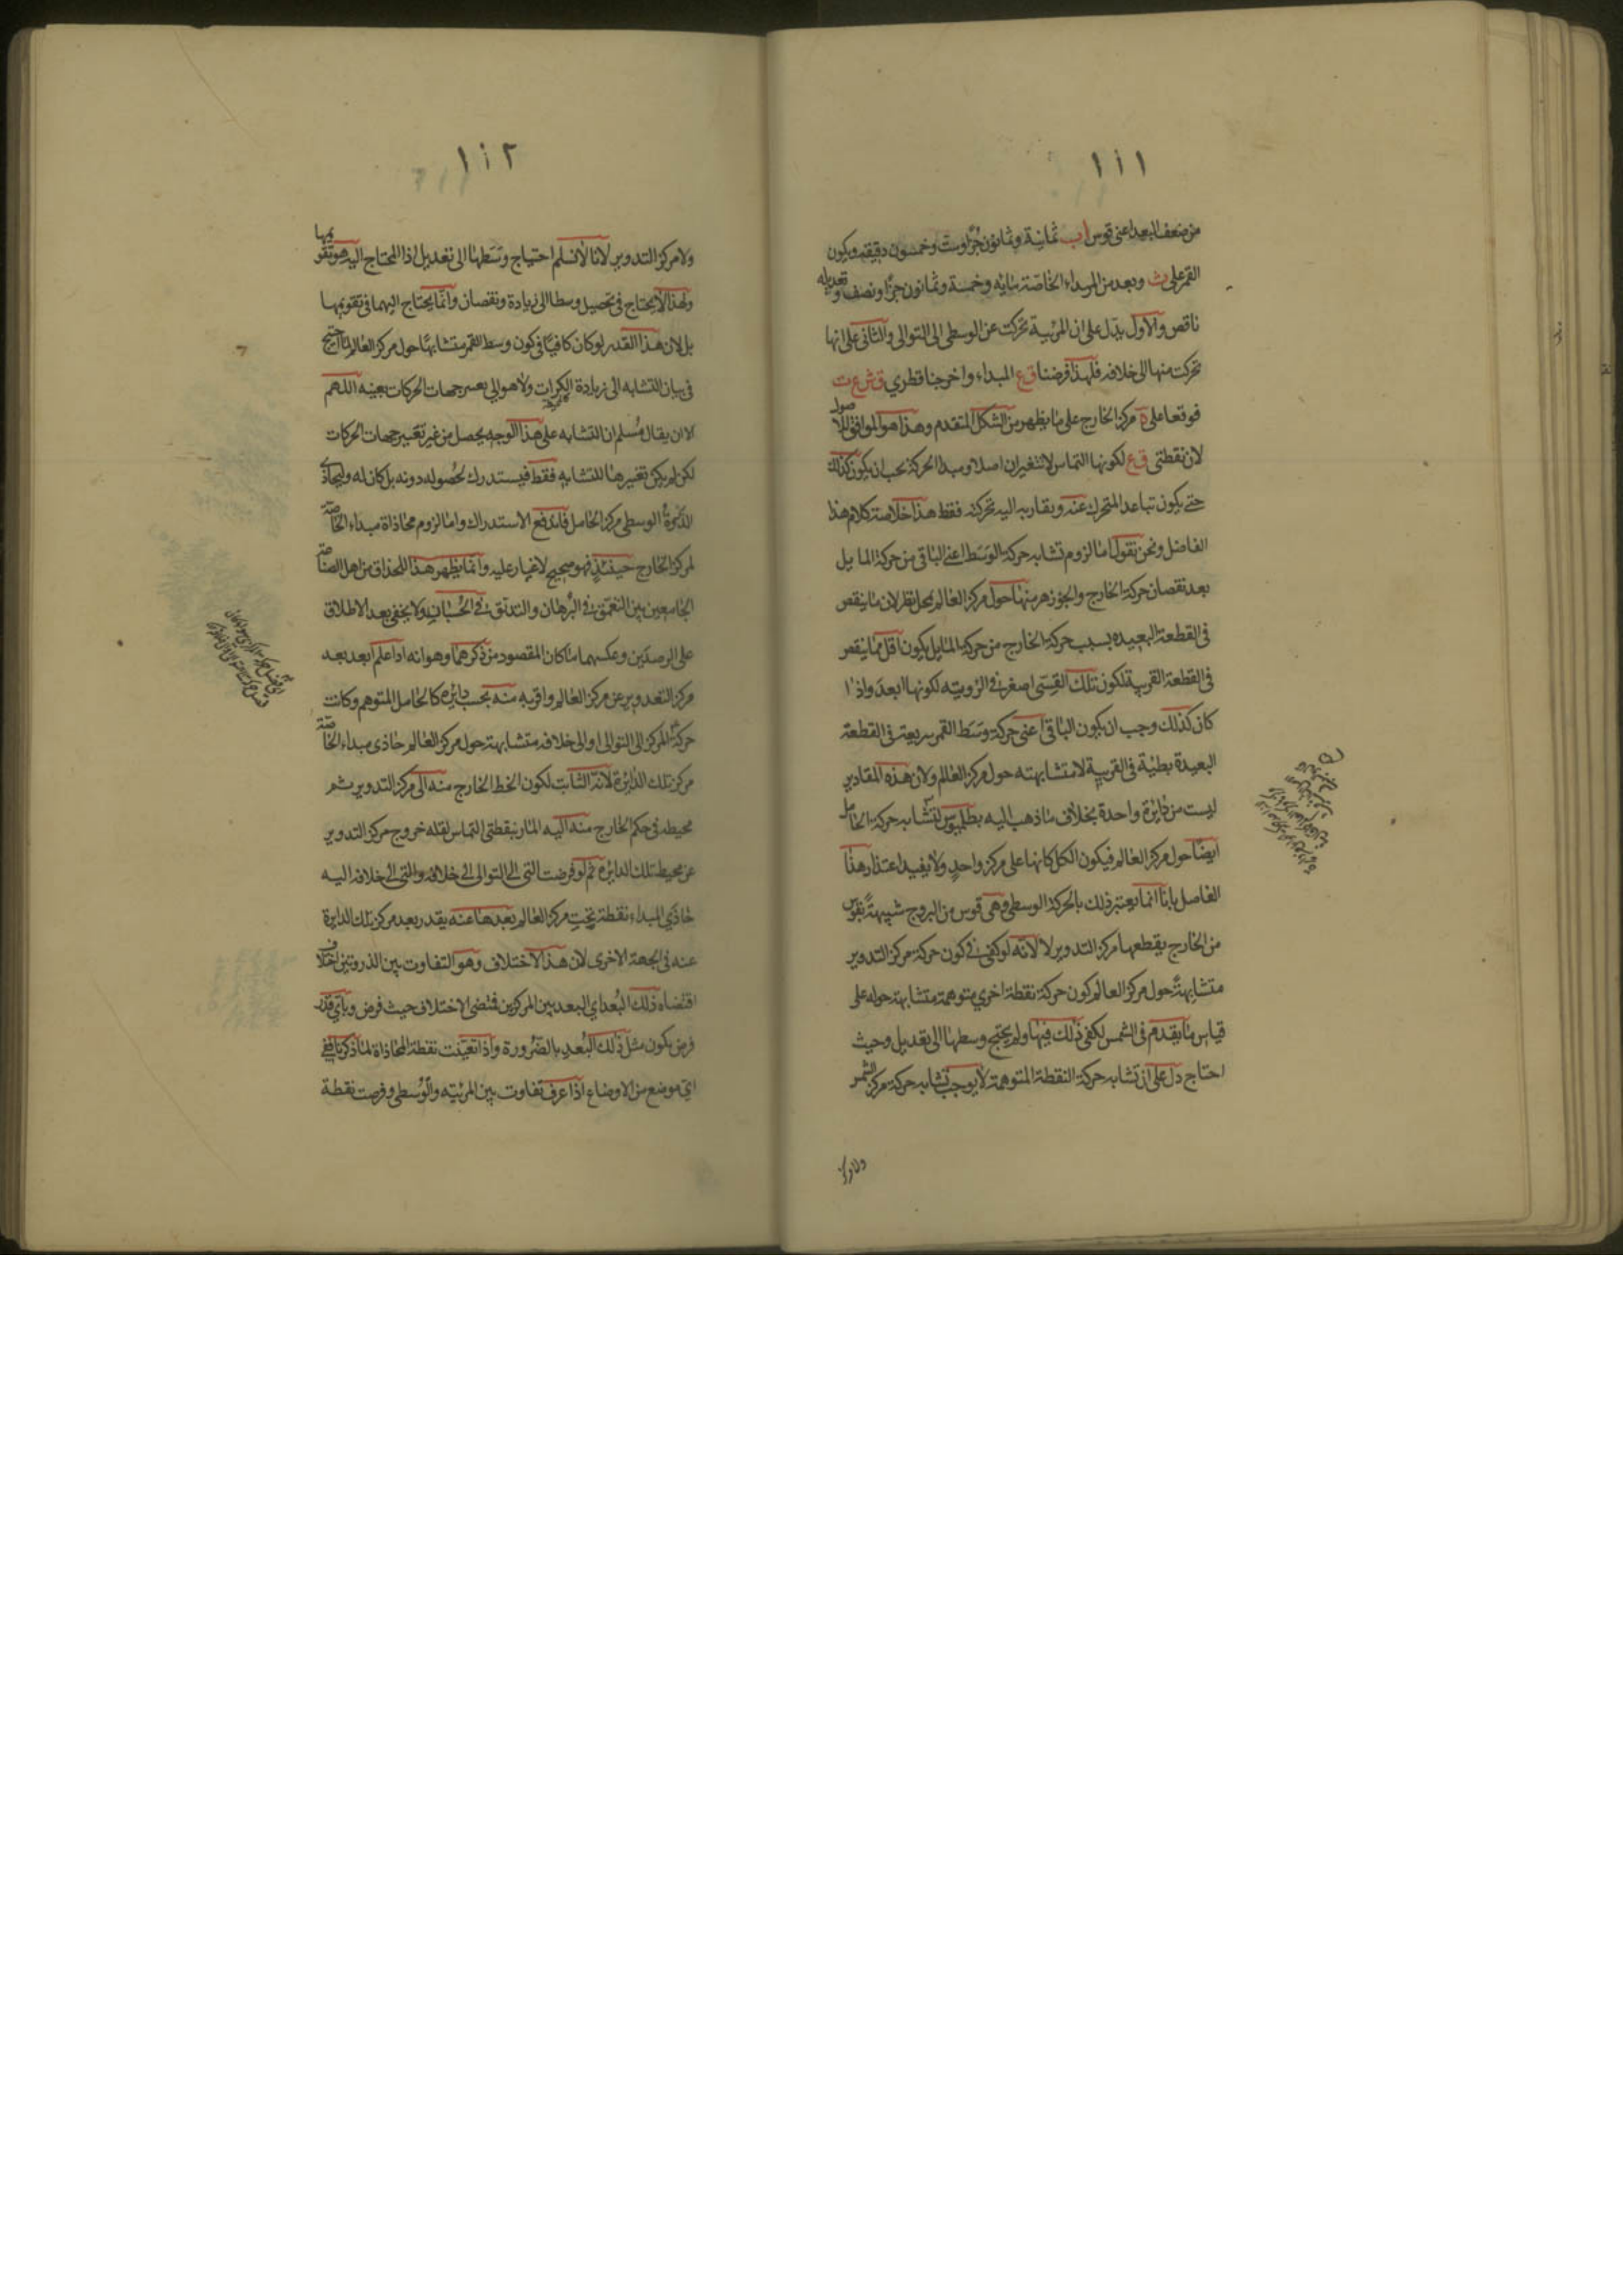 ١١١
من ضعف البعد اعنى قوس اب ثمانية وثمانون جزاً وست وخمسون دقيقة ويكون
القمر على ث وبعده من المبداء الخاصة مايه وخمسة وثمانون جزاً ونصف وتعديله
ناقص والاول يدل على ان المرئية تحركت عن الوسطى الى التوالى والثانى على انها
تحركت منها الى خلافه فلهذا فرضنا ق ع المبداء واخرجنا قطري ق ش ع ت
فوقعا على ة مركز الخارج على ما يظهر من الشكل المتقدم وهذا هو الموافق للاصول
لان نقطتى ق ع لكونها التماس لا تتغيران اصلا ومبدا الحركة يجب ان يكون كذلك
حتى يكون تباعد المتحرك عنه وتقاربه اليه بحركته فقط هذا خلاصة كلام هذا
الفاضل ونحن نقول اما لزوم تشابه حركة الوسط اعنى الباقى من حركة المايل
بعد نقصان حركة الخارج والجوزهر منها حول مركز العالم محل نظر لان ما ينقص
فى القطعة البعيده بسبب حركة الخارج من حركة المايل يكون اقل مما ينقص
فى القطعة القريبة لكون تلك القسى اصغر فى الرويته لكونها ابعد واذا
كان كذلك وجب ان يكون الباقى اعنى حركة وسط القمر سريعة فى القطعة
البعيدة بطية فى القريبة لا متشابهته حول مركز العالم ولان هذه المقادير
ليست من دايرة واحدة بخلاف ما ذهب اليه بطلميوس لتشابه حركة الحامل
ايضا حول مركز العالم فيكون الكل كانها على مركز واحد ولا يفيد اعتذار هذا
الفاصل بانا انما يعتبر ذلك بالحركة الوسطى وهى قوس من البروج شبيهة بقوس
من الخارج يقطعها مركز التدوير لا لانه لو كفى فى كون حركة مركز التدوير
متشابهة حول مركز العالم كون حركة نقطة اخرى متوهمة متشابهة حوله على
قياس ما تقدم فى الشمس لكفى ذلك فيها ولم يحتج وسطها الى تعديل وحيث
احتاج دل على ان تشابه حركة النقطة المتوهمة لا يوجب تشابه حركة مركز الشمس
ولا مركز
١١٢
ولا مركز التدوير لانا لا نسلم احتياج وسطها الى تعديل اذ المحتاج اليه هو تقويمها
ولهذا لا يحتاج فى تحصيل وسطا الى زيادة ونقصان وانما يحتاج اليهما فى تقويمها
بل لان هذا القدر لو كان كافيا فى كون وسط القمر متشابها حول مركز العالم لما احتيج
فى بيان التشابه الى زيادة الكرات ولا هو الى جهات الحركات بعينه اللهم
الا ان يقال مسلم ان التشابه على هذا الوجه يحصل من غير تغيير جهات الحركات
لكن لم يكن تغييرها للتشابه فقط فيستدرك لحصوله دونه بل كان له وليحاذى
الذروة الوسطى مركز الحامل فاندفع الاستدراك واما لزوم محاذاة مبداء الخاصة
لمركز الخارج حينئذ فهو صحيح لا غبار عليه وانما يظهر هذا للحذاق من اهل الصناعة
الجامعين بين التعمق فى البرهان والتدقيق فى الحسبان ولا يخفى بعد الاطلاق
على الرصدين وعكسهما ما كان المقصود من ذكرهما وهو انه اذا علم ابعد بعد
مركز التدوير عن مركز العالم واقربه منه بحسب دايرة كالحامل المتوهم وكانت
حركة المركز الى التوالى او الى خلافه متشابهة حول مركز العالم حاذى مبداء الخاصة
مركز تلك الدايرة لانه الثابت لكون الخط الخارج منه الى مركز التدوير ثم
محيطه فى حكم الخارج منه اليه المار بنقطتى التماس لقلة خروج مركز التدوير
عن محيط تلك الدايرة ثم لو فرضت التى الى التوالى الى خلافه والتى الى خلافه اليه
حاذى المبداء نقطة تحت مركز العالم بعدها عنه بقدر بعد مركز تلك الدايرة
عنه فى الجهة الاخرى لان هذا الاختلاف وهو التفاوت بين الذروتين اختلاف
اقتضاه ذلك البعد اي البعد بين المركزين فمقتضى الاختلاف حيث فرض وباي قدر
فرض يكون مثل ذلك البعد بالضرورة واذا تعينت نقطة المحاذاة لما ذكرنا ففى
اي موضع من الاوضاع اذا عرف تفاوت بين المرئيه والوسطى وفرصت نقطة